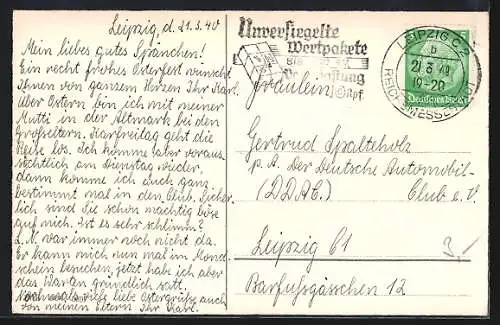 Leipzig, d. 21.3.40
Mein liebes gutes Spänchen!
Ein recht frohes Osterfest wünscht
Ihnen von ganzem Herzen Ihr Karl.
Über Ostern bin ich mit meiner
Mutti in der Altmark bei den
Großeltern. Karfreitag geht die
Reise los. Ich komme aber voraus
sichtlich am Dienstag wieder,
dann komme ich auch ganz
bestimmt mal in den Club. Sicher
lich sind Sie schon mächtig böse
auf mich. Ist es sehr schlimm?
L. N. war immer noch nicht da.
Er kann mich nun mal im Mond
schein besuchen, jetzt habe ich aber
das Warten gründlich satt.
Nochmals viele liebe Ostergrüße auch
von meinen Eltern. Ihr Karl.
Unversiegelte
Wertpakete
bis
Fräulein
Gertrud Spalteholz
p. A. Der Deutsche Automobil-
(DDAC) Club e. V.
Leipzig C1
Barfußgässchen 12
LEIPZIG C 2
b
21.3.40
19-20
REICHSMESSESTADT
Deutsches Reich